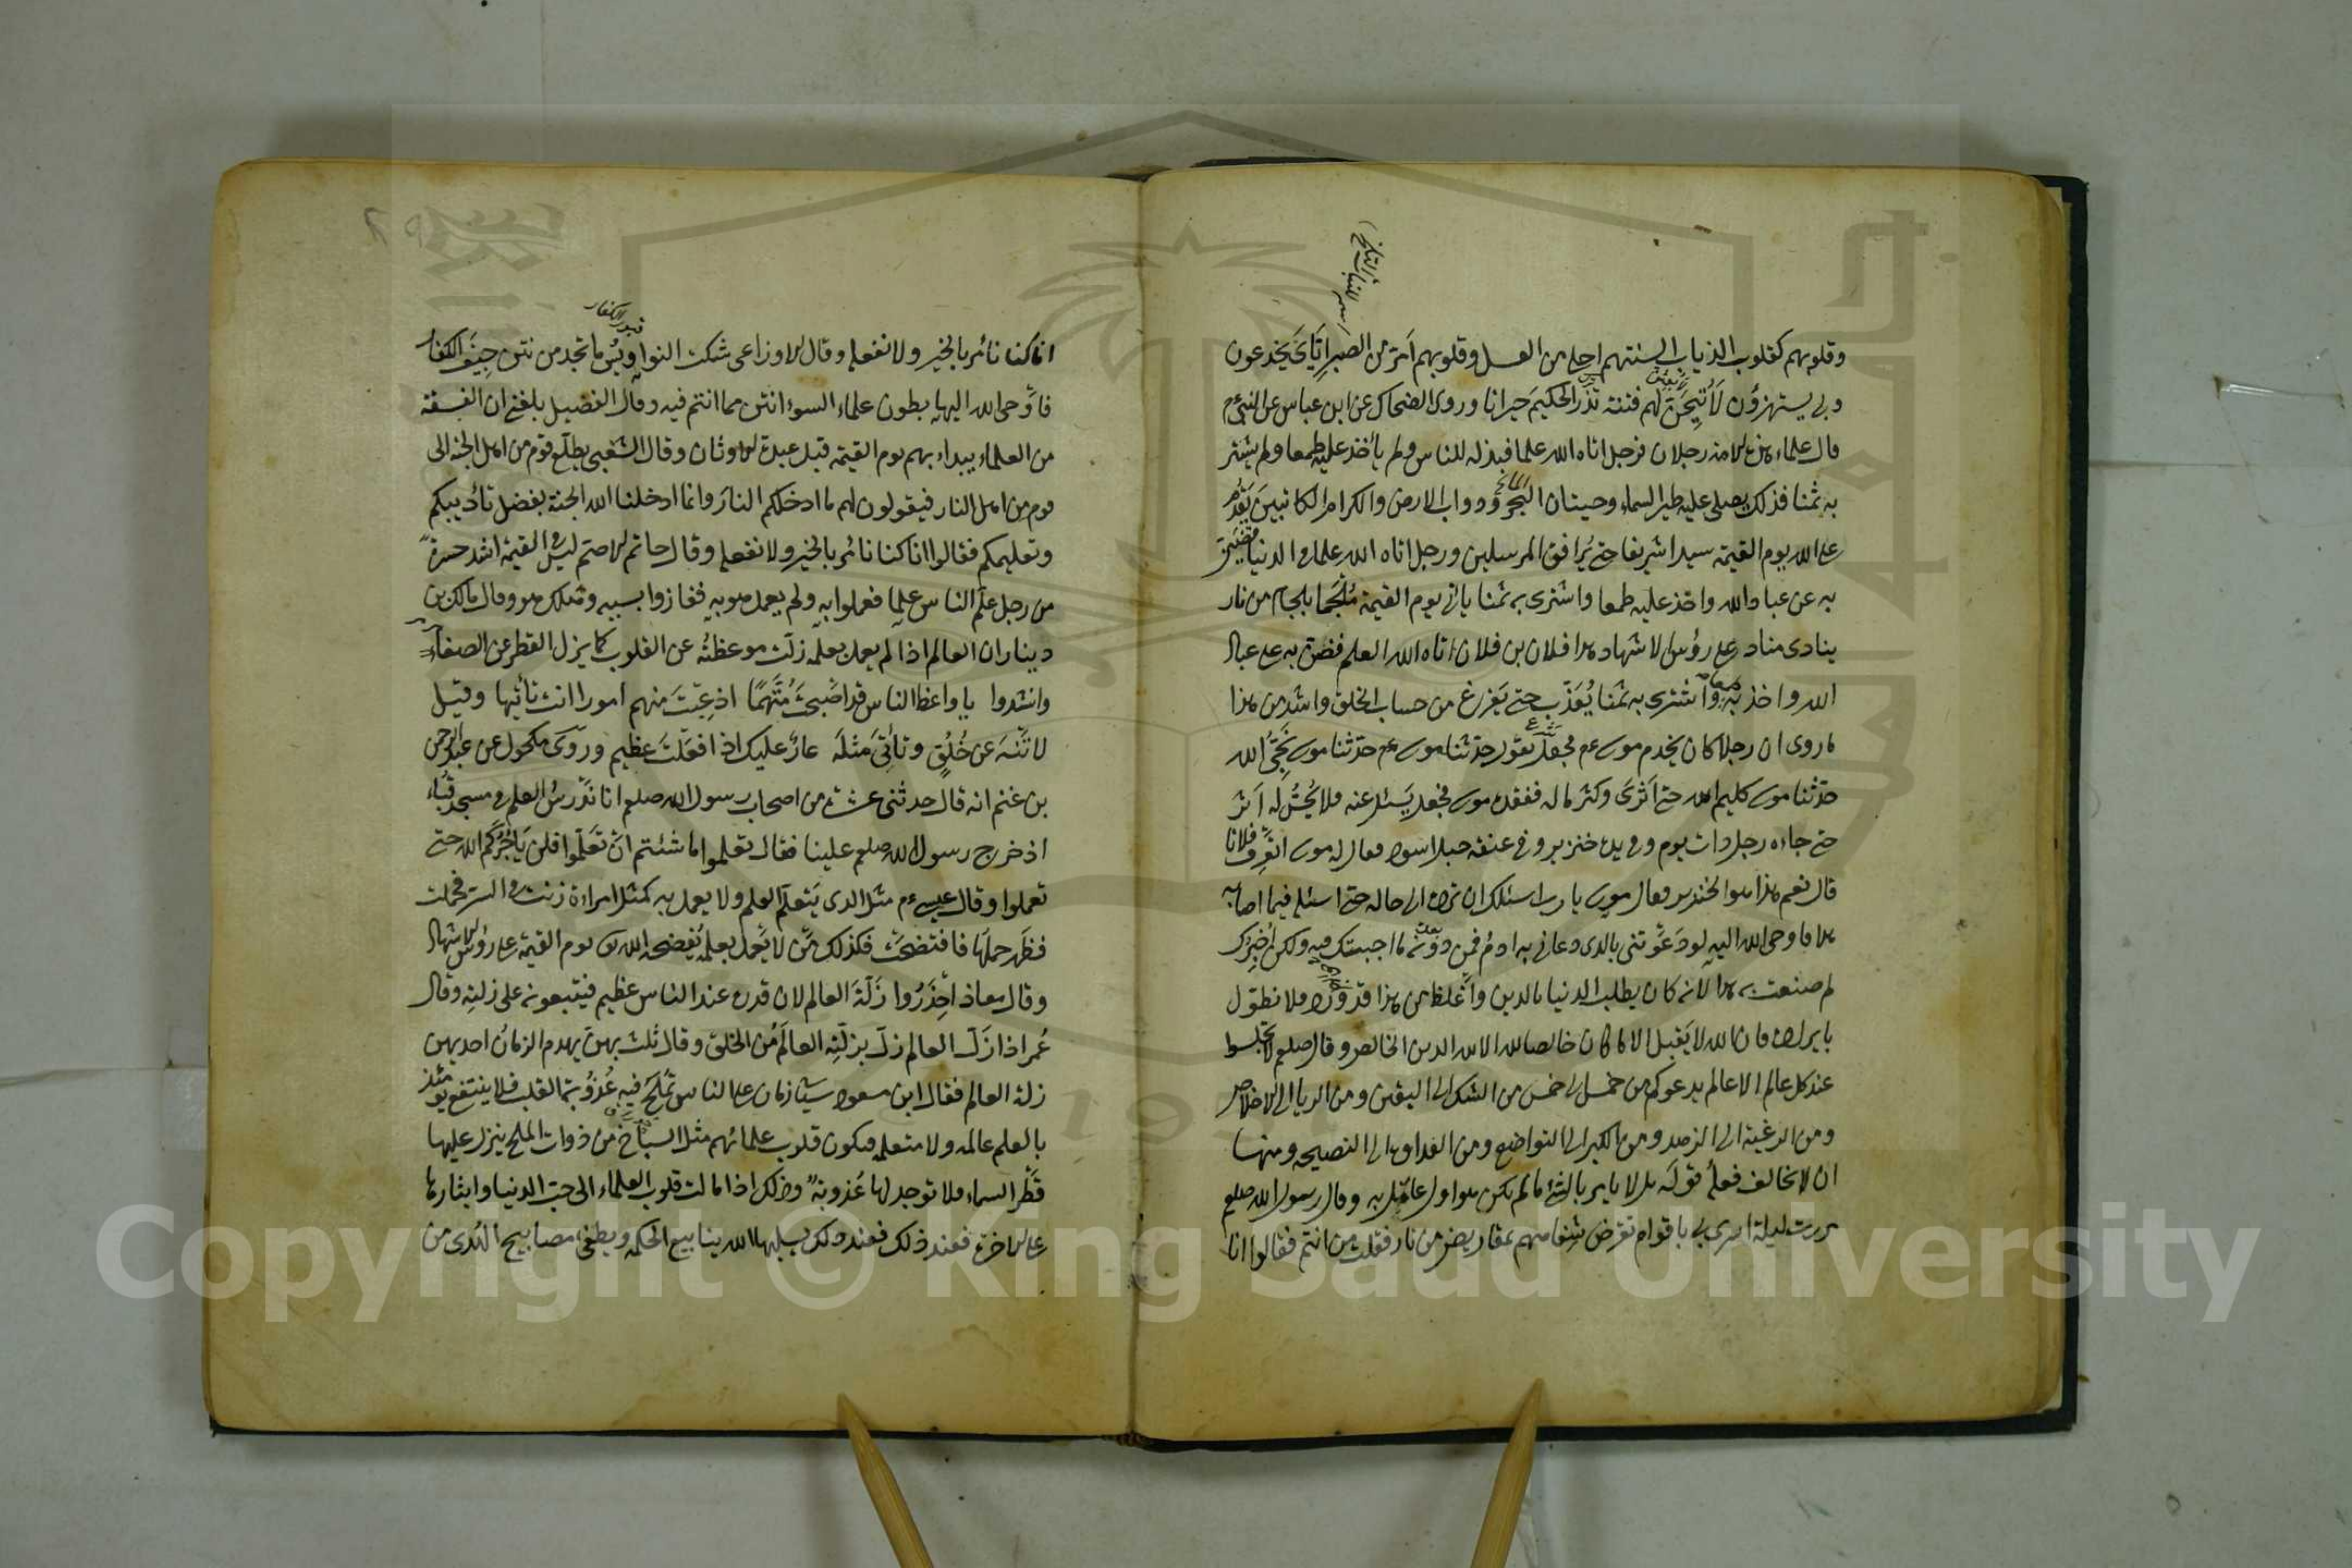 وقلوبهم كقلوب الذياب السنتهم احلى من العسل وقلوبهم امر من الصبر اِيَّايَ يَخدعون
وبى يستهزؤن لَاُتِيحَنَّ لهم فتنة تذر الحكيمَ حَيرانا وروى الضحاك عن ابن عباس عن النبى عم
قال علماء هذه الامة رجلان فرجل اتاه الله علما فبذله للناس ولم يأخذ عليه طمعا ولم يشتر
به ثمنا فذلك يصلى عليه طير السماء وحيتان البحر ودواب الارض والكرام الكاتبين يَقدُم
على الله يوم القيمة سيدا شريفا حتى يُرافق المرسلين ورجل اتاه الله علما فى الدنيا فضنّ
به عن عباد الله واخذ عليه طمعا واشترى به ثمنا يأتى يوم القيمة مُلْجَما بلجام من نار
ينادى مناد على رؤس الاشهاد هذا فلان بن فلان اتاه الله العلم فضن به على عباد
الله واخذ به طمعا واشترى به ثمنا يُعَذَّب حتى يَفرغ من حساب الخلق واشد من هذا
ما روى ان رجلا كان يخدم موسى عم فجعل يقول حدّثنا موسى عم حدّثنا موسى نَجِىُّ الله
حدّثنا موسى كليم الله حتى اَثرَى وكثر ماله ففقده موسى فجعل يَسئل عنه فلا يُحِسُّ له اَثر
حتى جاءه رجل ذات يوم وفى يده خنزير وفى عنقه حبل اسود فقال له موسى اتعرف فلانا
قال نعم هذا هو الخنزير فقال موسى يا رب اسئلك ان ترده الى حاله حتى اسئله فيما اصابه
هذا فاوحى الله اليه لو دَعَوْتنى بالذى دعانى به ادم فمن دونه ما اجبتك فيه ولكن اُخبِرك
لم صنعت به هذا لانه كان يطلب الدنيا بالدين واَغلظ من هذا قد ورد فلا نطول
بايراده فان الله لا يَقبل الا ما كان خالصا لله الا لله الدين الخالص وقال صلعم لا تجلسوا
عند كل عالم الا عالم يدعوكم من خمس الى خمس من الشك الى اليقين ومن الريا الى الاخلاص
ومن الرغبة الى الزهد ومن الكبر الى التواضع ومن العداوة الى النصيحه ومنها
ان لا يخالف فعلُه قولَه بل لا يامر بالشئ ما لم يكن هو اول عامل به وقال رسول الله صلعم
مررت ليلة اسرى بى باقوام تقرض شِفاههم بمقاريض من نار فقلت من انتم فقالوا انا
انا كنا نائمر بالخير ولا نفعله وقال الاوزاعى شكت النواويس ما تجد من نتن جِيَف الكفار
فاَوحى الله اليها بطون علماء السوء انتن مما انتم فيه وقال الفضيل بلغنى ان الفسقة
من العلماء يبداء بهم يوم القيمة قبل عبدة الاوثان وقال الشعبى يطلع قوم من اهل الجنة الى
قوم من اهل النار فيقولون لهم ما ادخلكم النارَ وانما ادخلنا الله الجنةَ بفضل تأديبكم
وتعليمكم فقالوا انا كنا نائمر بالخير ولا نفعله وقال حاتم الاصم ليس فى القيمة اشد حسرةً
من رجل علّم الناس علما فعملوا به ولم يعمل هو به ففازوا بسببه وهلك هو وقال مالك بن
دينار ان العالم اذا لم يعمل بعلمه زلّت موعظتُه عن القلوب كما يزل القطر عن الصفاء
وانشدوا يا واعظ الناس قد اصْبحْتَ مُتَّهَمًا اذ عِبْتَ منهم امورا انت تأتيها وقيل
لا تَنْهَ عن خُلُقٍ وتأتِىَ مثلَه عارٌ عليك اذا فعَلْتَ عظيم وروى مكحول عن عبد الرحمن
بن غنم انه قال حدثنى عشرة من اصحاب رسول الله صلعم انا نَدْرسُ العلم فى مسجد قُباء
اذ خرج رسول الله صلعم علينا فقال تعلموا ما شئتم اَنْ تَعَلَّموا فلن يَأجُرَكُم الله حتى
تعملوا وقال عيسى عم مثل الذى يَتعلم العلم ولا يعمل به كمثل امراءة زنت فى السر فحملت
فظَهر حملها فافتضحَتْ فكذلك مَن لا يَعمل بعلمه يُفضحه الله يوم القيمة على رؤس الاشهاد
وقال معاذ اِحْذَرُوا زَلّةَ العالم لان قدره عند الناس عظيم فيتبعونه على زلته وقال
عُمر اذا زَلّ العالم زلّ بزلّتِه العالَمُ من الخلق وقال ثلث بهن يهدم الزمانُ احديهن
زلة العالم فقال ابن مسعود سيأتى زمان على الناس تَملَحُ فيه عُذوُبة القلب فلا ينتفع يومئذ
بالعلم عالمه ولا متعلمه فيكون قلوب علمائهم مثل السباخ من ذوات الملح ينزل عليها
قَطْر السماء فلا توجد لها عُذوبةٌ وذلك اذا مالت قلوب العلماء الى حبّ الدنيا وايثارها
على الاخرة فعند ذلك يسلبها الله ينابيع الحكمه ويطفئ مصابيح الهُدى من
Copyright © King Saud University